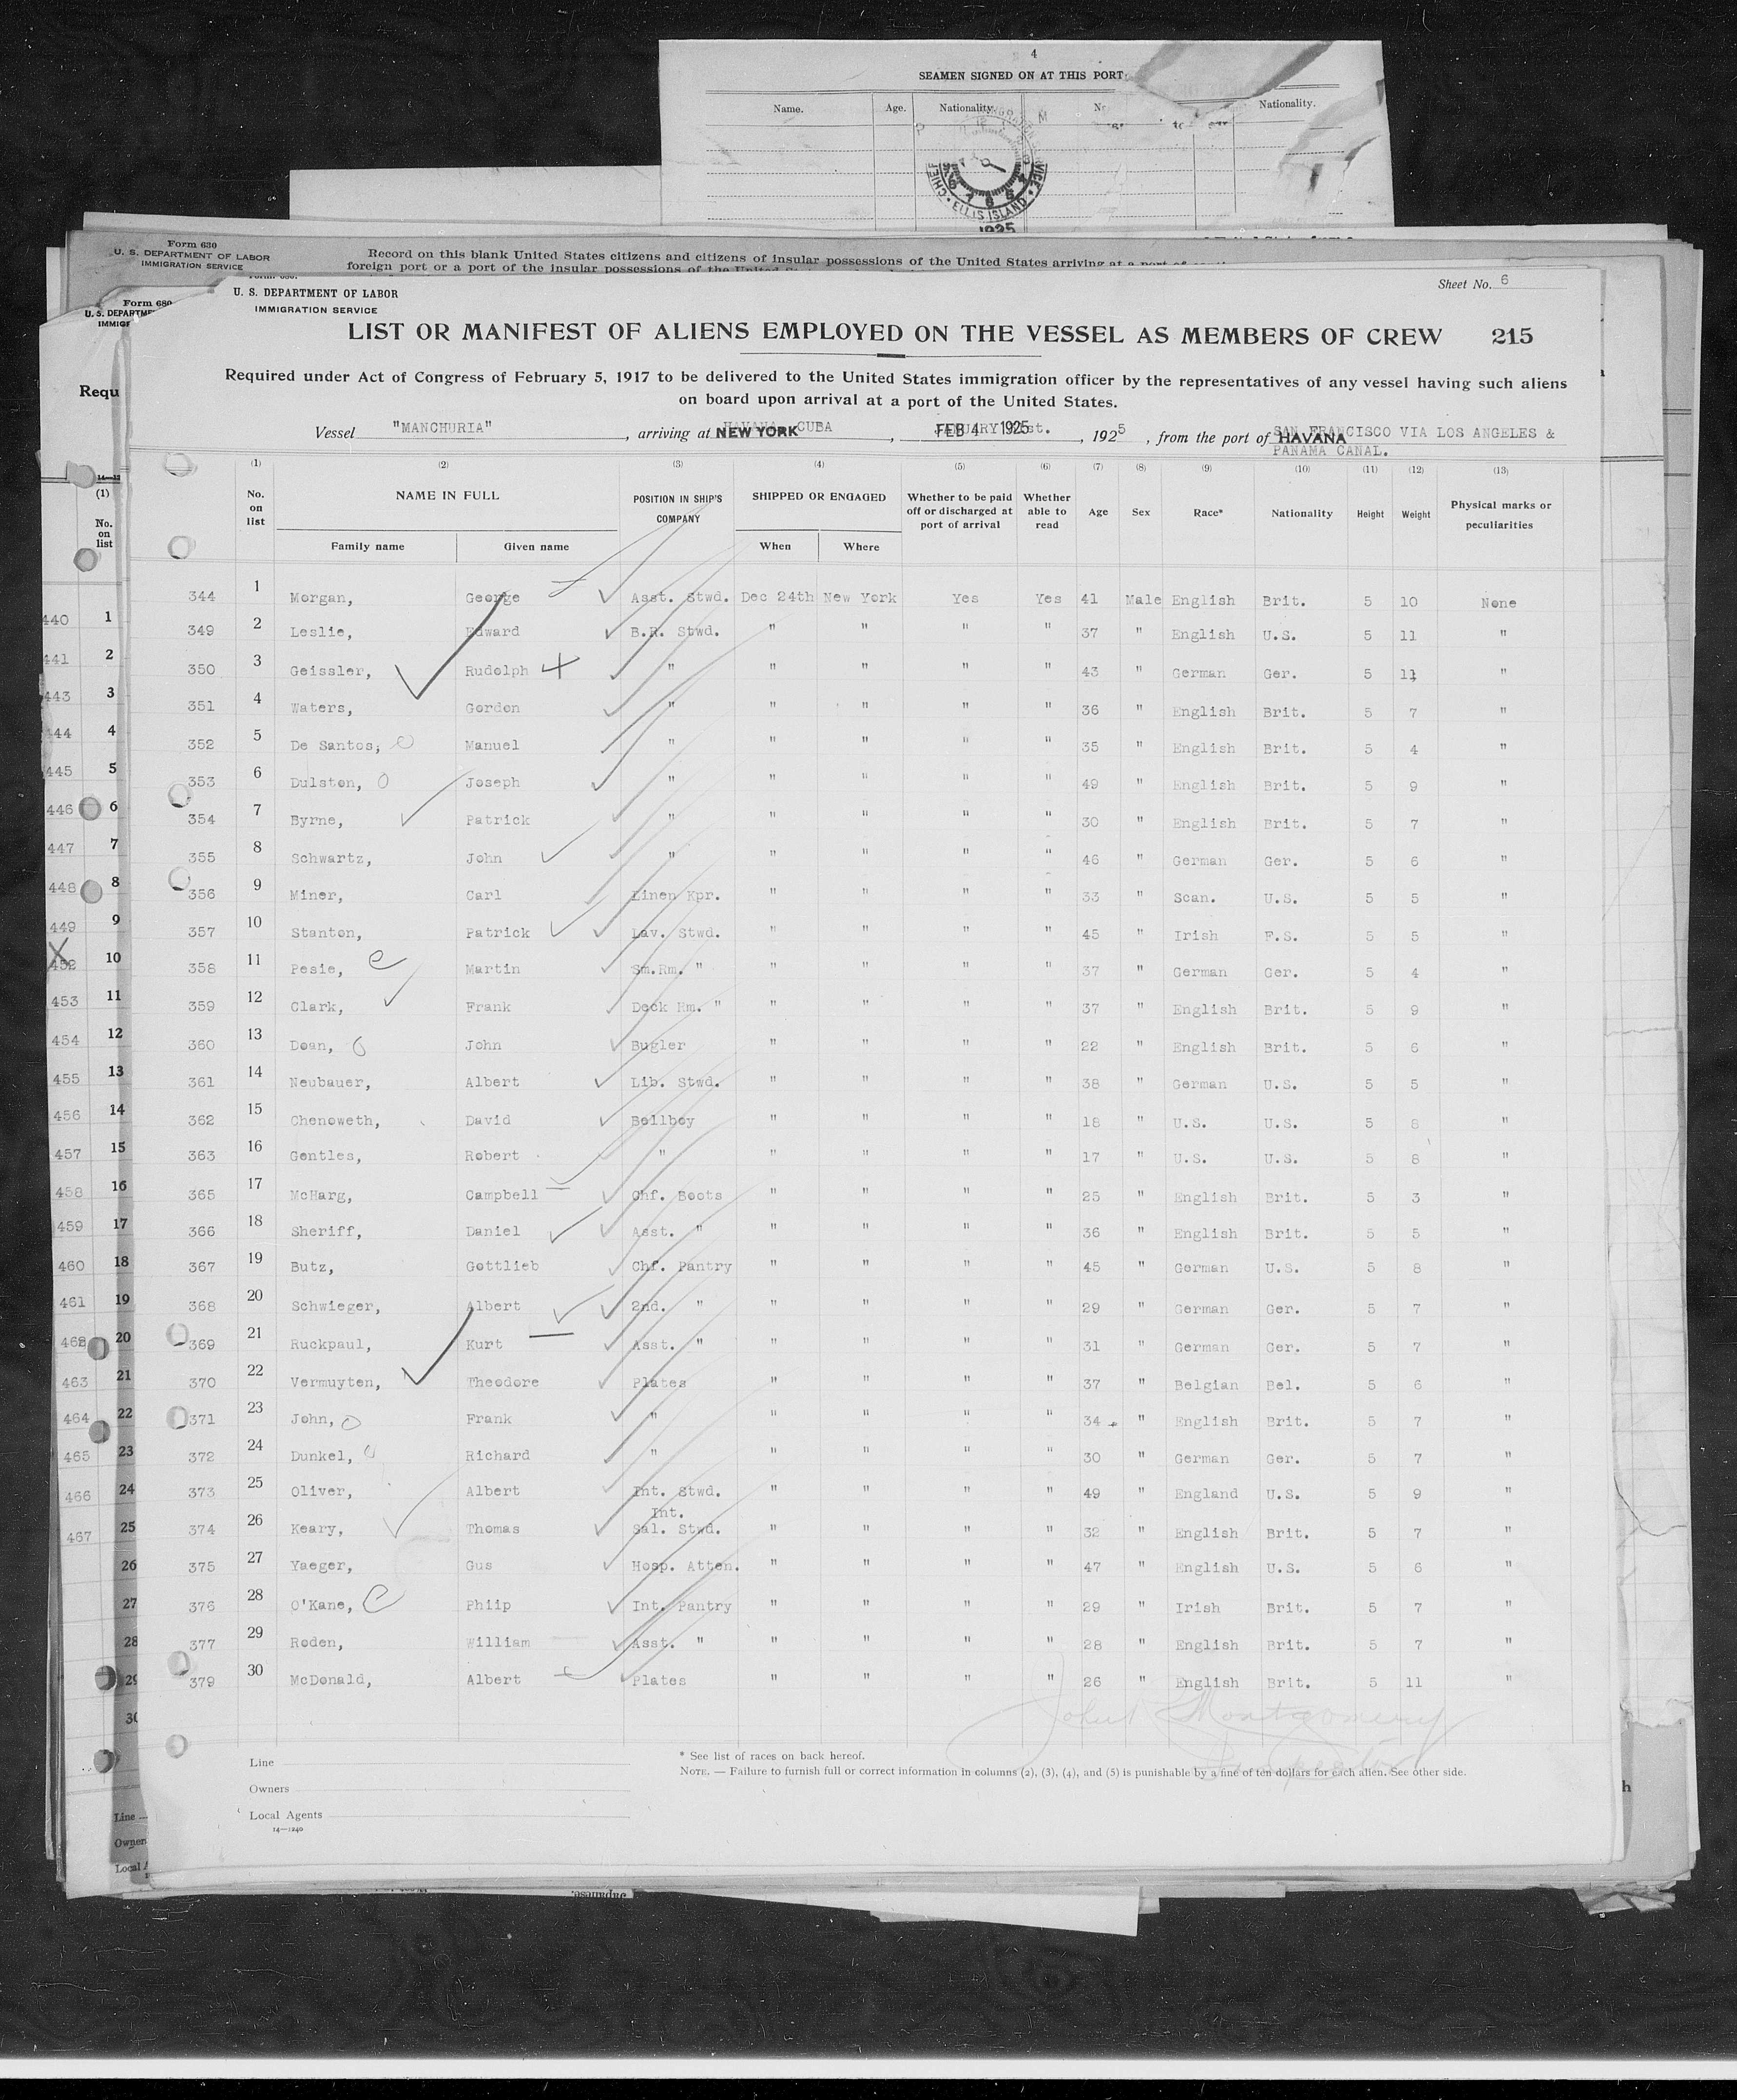 4
SEAMEN SIGNED ON AT THIS PORT
Name. Age. Nationality. Nationality.
ELLIS ISLAND
1925
Form 630
U. S. DEPARTMENT OF LABOR
IMMIGRATION SERVICE
Record on this blank United States citizens and citizens of insular possessions of the United States arriving at a port of
foreign port or a port of the insular possessions of the United
Form 680
U. S. DEPARTMENT OF LABOR
IMMIGRATION SERVICE
Sheet No. 6
LIST OR MANIFEST OF ALIENS EMPLOYED ON THE VESSEL AS MEMBERS OF CREW 215
Required under Act of Congress of February 5, 1917 to be delivered to the United States immigration officer by the representatives of any vessel having such aliens
on board upon arrival at a port of the United States.
Vessel "MANCHURIA", arriving at HAVANA, CUBA NEW YORK, FEB 4 1925, 1925, from the port of HAVANA SAN FRANCISCO VIA LOS ANGELES &
PANAMA CANAL.
(1) (2) (3) (4) (5) (6) (7) (8) (9) (10) (11) (12) (13)
No. on list NAME IN FULL POSITION IN SHIP'S COMPANY SHIPPED OR ENGAGED Whether to be paid off or discharged at port of arrival Whether able to read Age Sex Race* Nationality Height Weight Physical marks or peculiarities
Family name Given name When Where
344 1 Morgan, George Asst. Stwd. Dec 24th New York Yes Yes 41 Male English Brit. 5 10 None
349 2 Leslie, Edward B.R. Stwd. " " " " 37 " English U.S. 5 11 "
350 3 Geissler, Rudolph " " " " " 43 " German Ger. 5 11 "
351 4 Waters, Gordon " " " " " 36 " English Brit. 5 7 "
352 5 De Santos, Manuel " " " " " 35 " English Brit. 5 4 "
353 6 Dulston, Joseph " " " " " 49 " English Brit. 5 9 "
354 7 Byrne, Patrick " " " " " 30 " English Brit. 5 7 "
355 8 Schwartz, John " " " " " 46 " German Ger. 5 6 "
356 9 Miner, Carl Linen Kpr. " " " " 33 " Scan. U.S. 5 5 "
357 10 Stanton, Patrick Lav. Stwd. " " " " 45 " Irish F.S. 5 5 "
358 11 Pesie, Martin Sm.Rm. " " " " " 37 " German Ger. 5 4 "
359 12 Clark, Frank Deck Rm. " " " " " 37 " English Brit. 5 9 "
360 13 Doan, John Bugler " " " " 22 " English Brit. 5 6 "
361 14 Neubauer, Albert Lib. Stwd. " " " " 38 " German U.S. 5 5 "
362 15 Chenoweth, David Bellboy " " " " 18 " U.S. U.S. 5 8 "
363 16 Gentles, Robert " " " " " 17 " U.S. U.S. 5 8 "
365 17 McHarg, Campbell Chf. Boots " " " " 25 " English Brit. 5 3 "
366 18 Sheriff, Daniel Asst. " " " " " 36 " English Brit. 5 5 "
367 19 Butz, Gottlieb Chf. Pantry " " " " 45 " German U.S. 5 8 "
368 20 Schwieger, Albert 2nd. " " " " " 29 " German Ger. 5 7 "
369 21 Ruckpaul, Kurt Asst. " " " " " 31 " German Ger. 5 7 "
370 22 Vermuyten, Theodore Plates " " " " 37 " Belgian Bel. 5 6 "
371 23 John, Frank " " " " " 34 " English Brit. 5 7 "
372 24 Dunkel, Richard " " " " " 30 " German Ger. 5 7 "
373 25 Oliver, Albert Int. Stwd. " " " " 49 " England U.S. 5 9 "
374 26 Keary, Thomas Int. Sal. Stwd. " " " " 32 " English Brit. 5 7 "
375 27 Yaeger, Gus Hosp. Atten. " " " " 47 " English U.S. 5 6 "
376 28 O'Kane, Phiip Int. Pantry " " " " 29 " Irish Brit. 5 7 "
377 29 Roden, William Asst. " " " " " 28 " English Brit. 5 7 "
379 30 McDonald, Albert Plates " " " " 26 " English Brit. 5 11 "
John Montgomery
Inspector
Line
Owners
Local Agents
14—1240
* See list of races on back hereof.
NOTE. — Failure to furnish full or correct information in columns (2), (3), (4), and (5) is punishable by a fine of ten dollars for each alien. See other side.